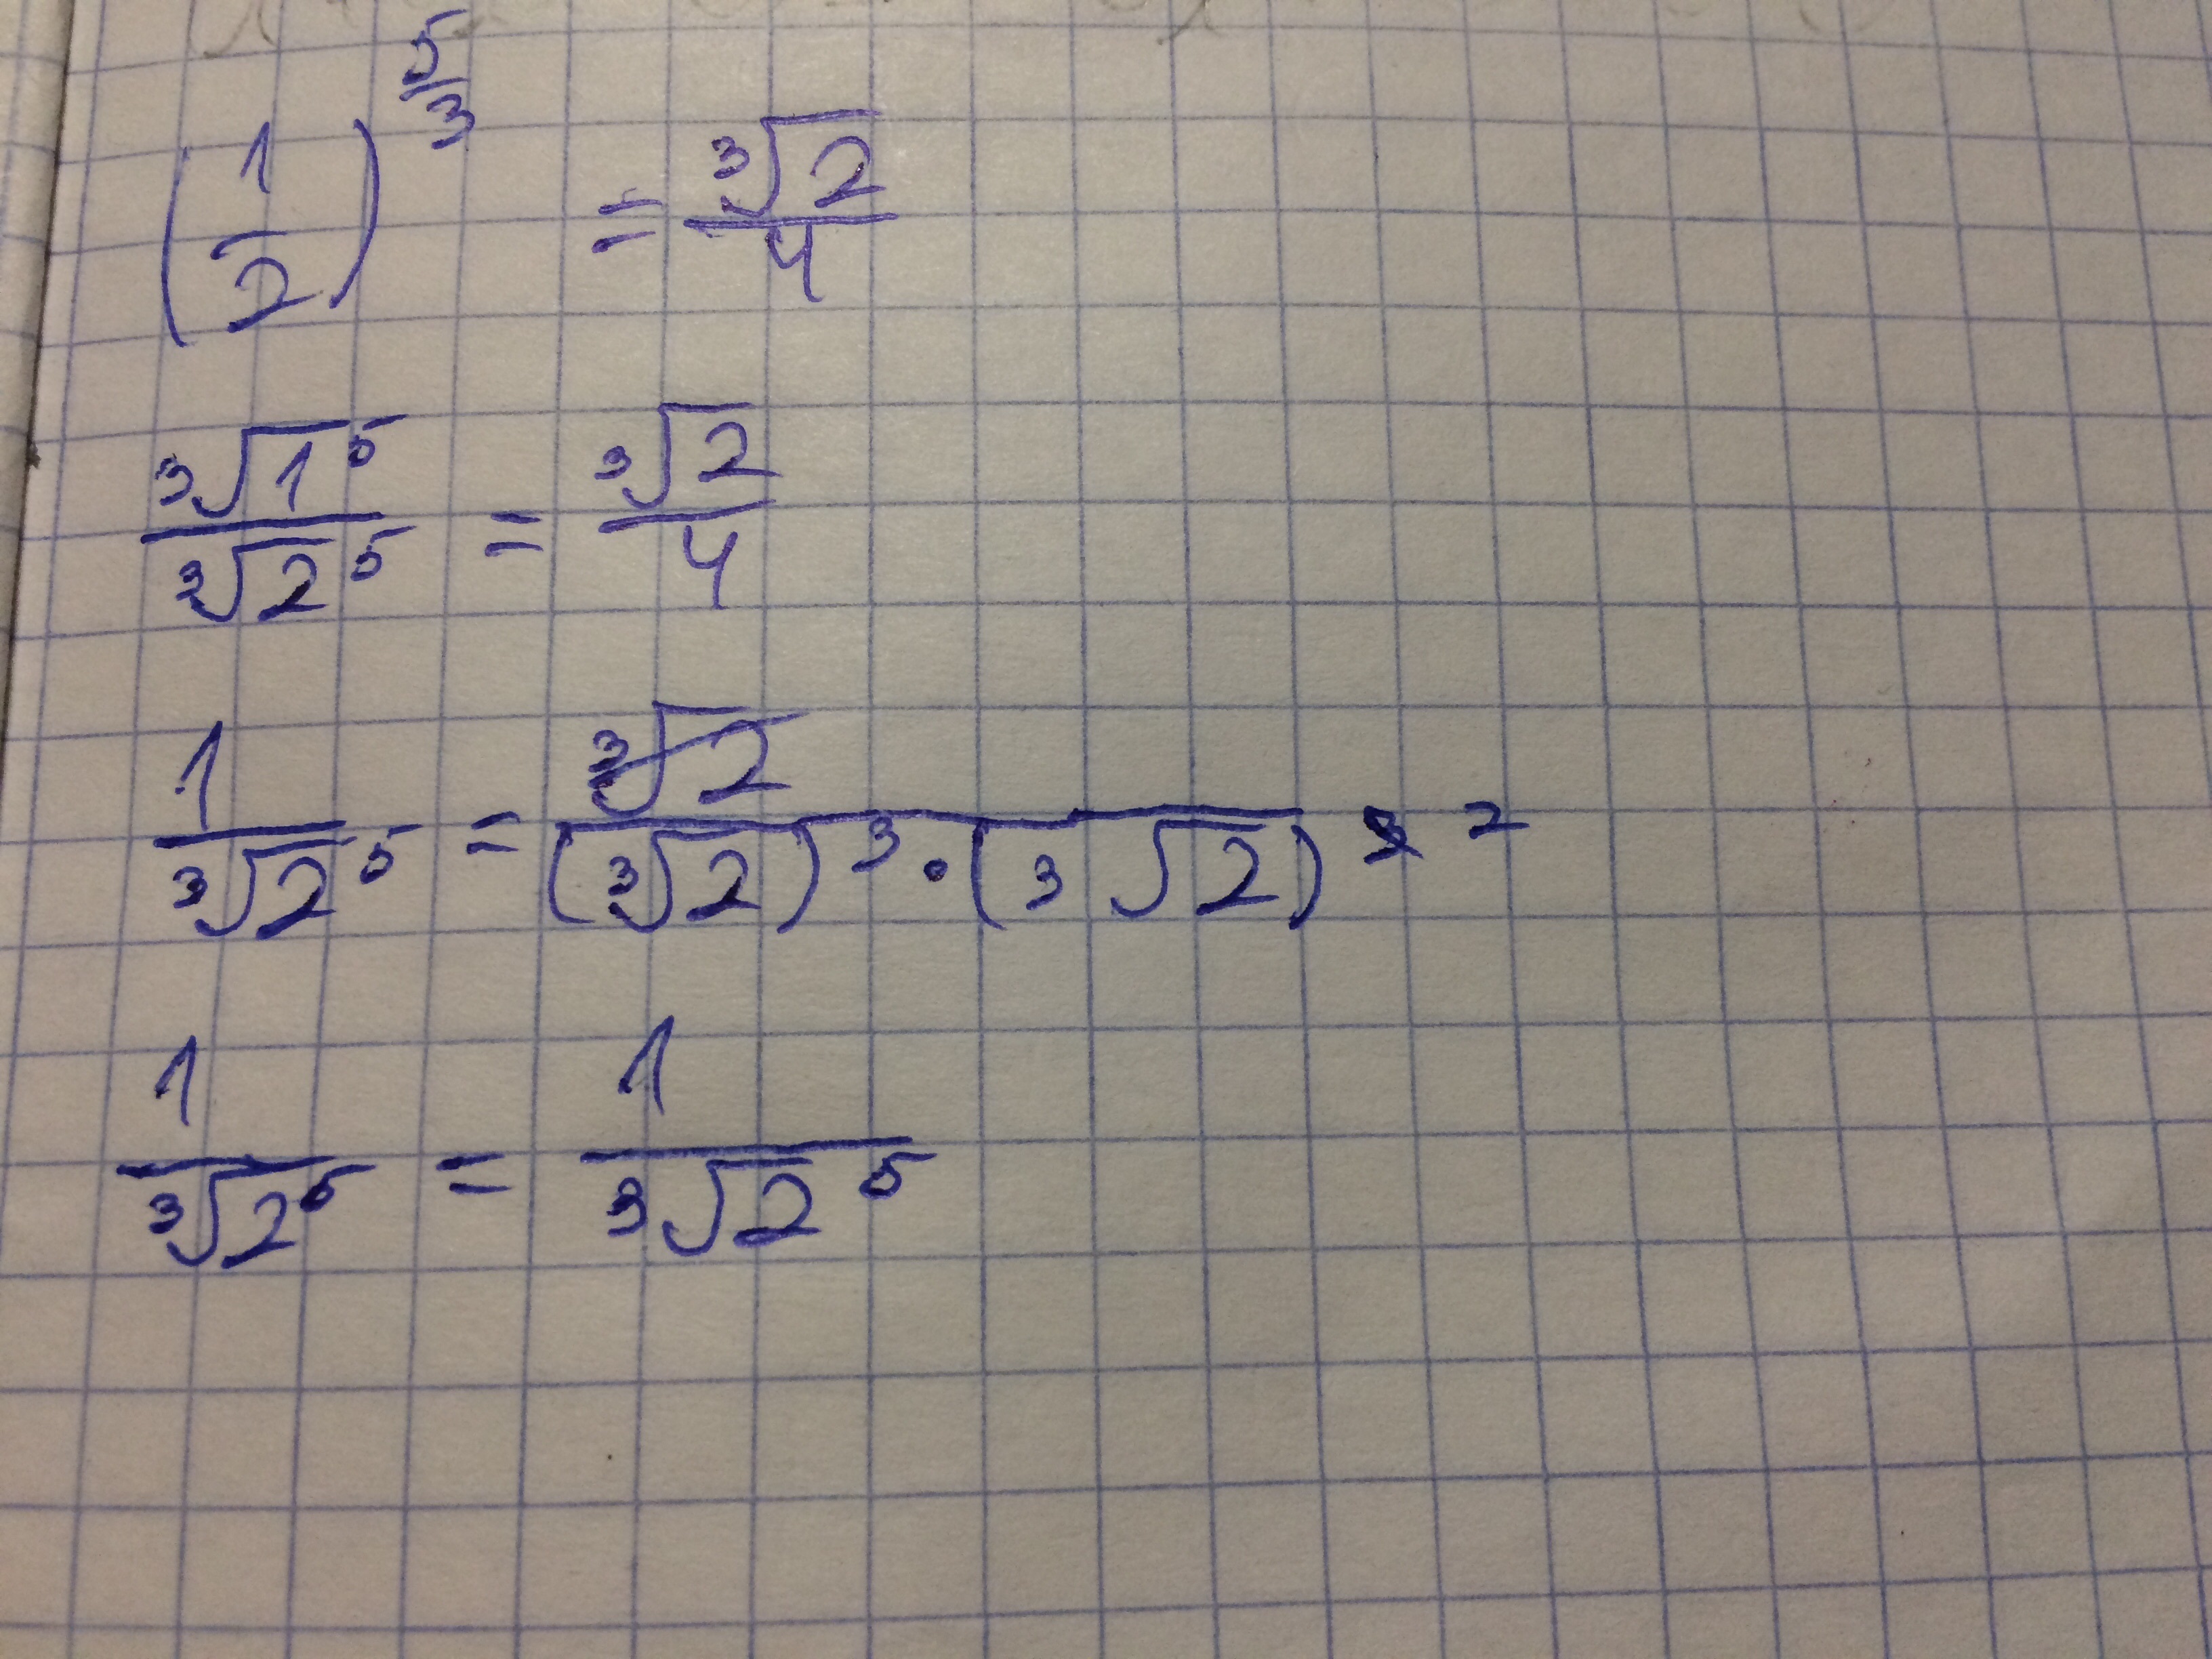 (1/2)^(5/3) = ³√2/4
³√1⁵/³√2⁵ = ³√2/4
1/³√2⁵ = ³√2/((³√2)³ · (³√2)²)
1/³√2⁵ = 1/³√2⁵